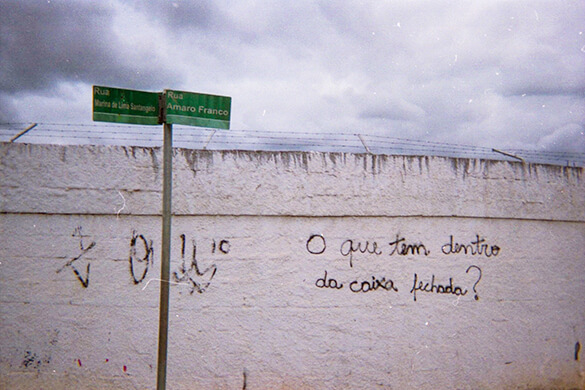 Rua
Marina de Lima Santangelo
Rua
Amaro Franco
O que tem dentro
da caixa fechada?